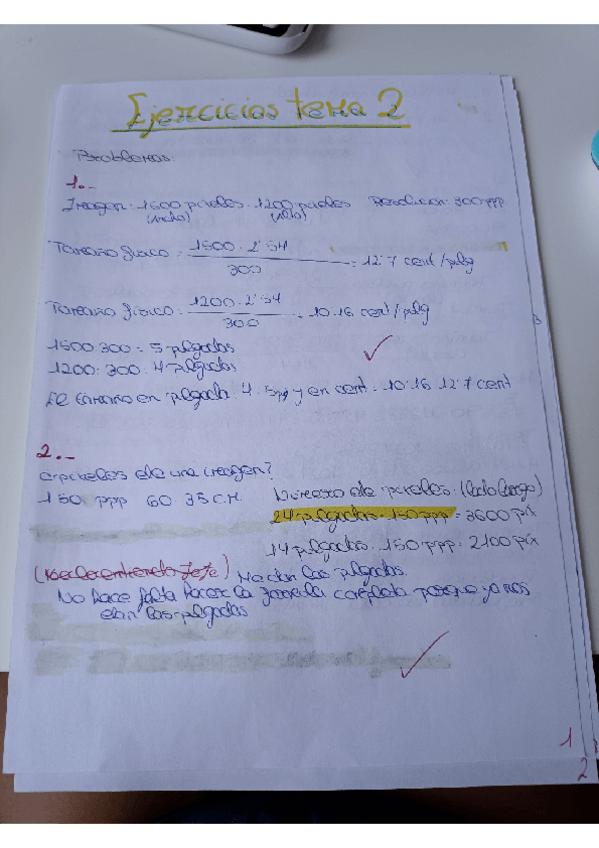 Ejercicios tema 2
Problemas:
1.-
Imagen: 1600 pixeles. 1200 pixeles Resolucion: 300 ppp
(ancho) (alto)
Tamaño fisico = 1500 · 2'54 / 300 = 12'7 cent/pulg
Tamaño fisico = 1200 · 2'54 / 300 = 10.16 cent/pulg
1500:300 = 5 pulgadas
1200:300 = 4 pulgadas
El tamaño en pulgada 4. 5 y en cent. 10'16 12'7 cent
2.-
d pixeles de una imagen?
150 ppp 60 35 cm Numero de pixeles: (lado largo)
24 pulgadas · 150 ppp = 3600 pix
14 pulgadas · 150 ppp = 2100 pix
Me dan las pulgadas.
No hace falta hacer la formula completa porque ya nos
dan las pulgadas
1
2